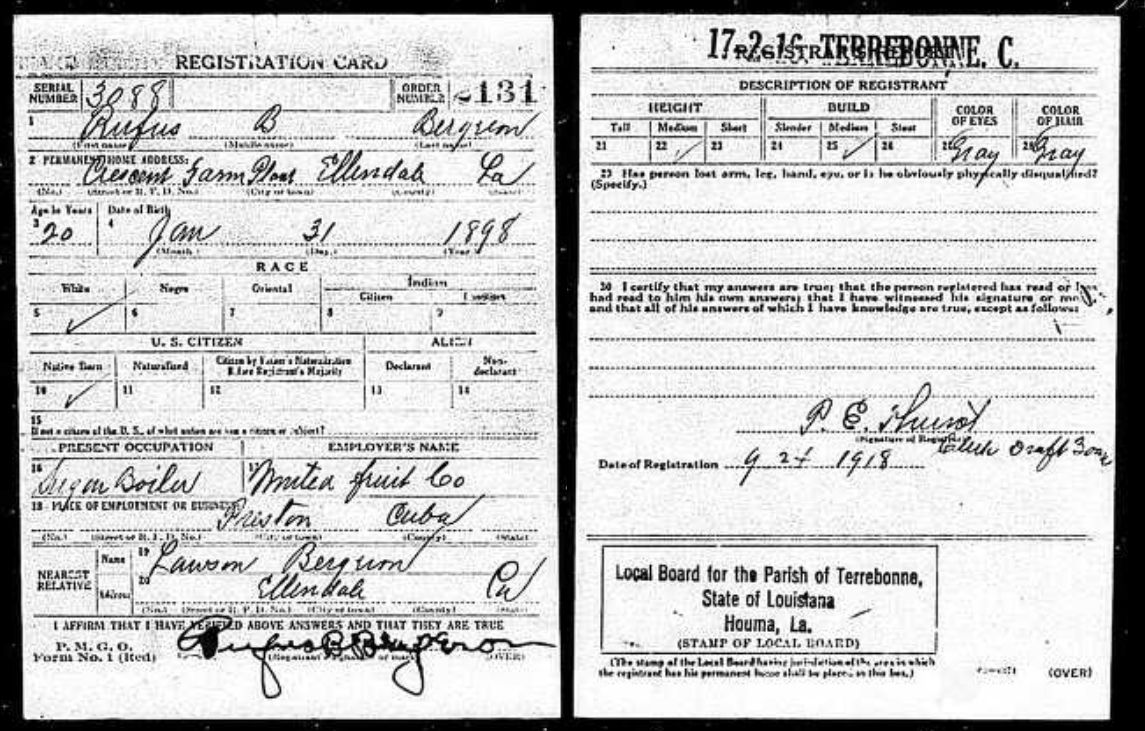 REGISTRATION CARD
SERIAL NUMBER 3088 ORDER NUMBER 2131
1 Rufus B Bergeron
(First name) (Middle name) (Last name)
2 PERMANENT HOME ADDRESS:
Crescent Farm Plant Ellendale La
(No.) (Street or R. F. D. No.) (City or town) (County) (State)
Age in Years Date of Birth
3 20 4 Jan 31 1898
(Month.) (Day.) (Year.)
RACE
White Negro Oriental Indian
Citizen
5 ✓ 6 7 8 9
U. S. CITIZEN ALIEN
Native Born Naturalized Citizen by Father's Naturalization Before Registrant's Majority Declarant Non-declarant
10 ✓ 11 12 13 14
15
If not a citizen of the U. S., of what nation are you a citizen or subject?
PRESENT OCCUPATION EMPLOYER'S NAME
16 Sugar Boiler 17 United fruit Co
18 PLACE OF EMPLOYMENT OR BUSINESS:
Preston Cuba
(No.) (Street or R. F. D. No.) (City or town) (County) (State)
NEAREST RELATIVE
Name 19 Lawson Bergeron
Address 20 Ellendale La
(No.) (Street or R. F. D. No.) (City or town) (County) (State)
I AFFIRM THAT I HAVE VERIFIED ABOVE ANSWERS AND THAT THEY ARE TRUE
P. M. G. O.
Form No. 1 (Red) Rufus B Bergeron
(Registrant's signature or mark) (OVER)
17-2-16 TERREBONNE. C.
REGISTRAR'S REPORT
DESCRIPTION OF REGISTRANT
HEIGHT BUILD COLOR OF EYES COLOR OF HAIR
Tall Medium Short Slender Medium Stout
21 22 ✓ 23 24 25 ✓ 26 27 Gray 28 Gray
29 Has person lost arm, leg, hand, eye, or is he obviously physically disqualified?
(Specify.)
30 I certify that my answers are true; that the person registered has read or has
had read to him his own answers; that I have witnessed his signature or mark,
and that all of his answers of which I have knowledge are true, except as follows:
P. E. Hurst
(Signature of Registrar)
Clerk Draft Board
Date of Registration 9 24 1918
Local Board for the Parish of Terrebonne,
State of Louisiana
Houma, La.
(STAMP OF LOCAL BOARD)
(The stamp of the Local Board having jurisdiction of the area in which
the registrant has his permanent home shall be placed in this box.)
(OVER)